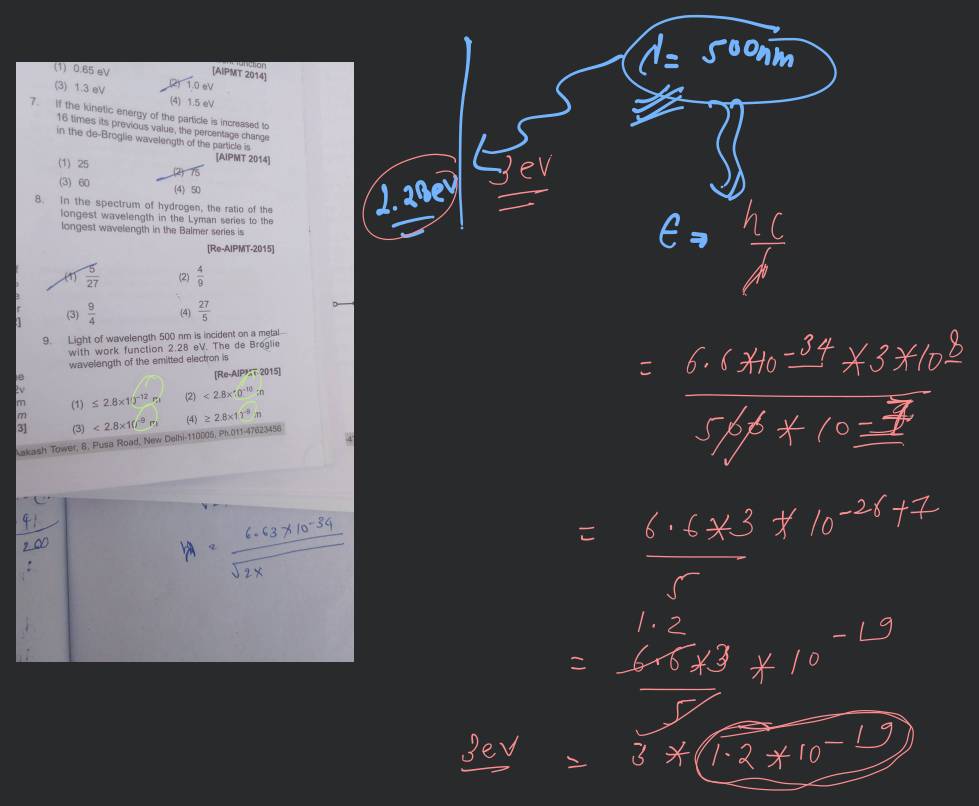 (1) 0.65 eV
[AIPMT 2014]
(2) 1.0 eV
(3) 1.3 eV
(4) 1.5 eV
7. If the kinetic energy of the particle is increased to
16 times its previous value, the percentage change
in the de-Broglie wavelength of the particle is
[AIPMT 2014]
(1) 25
(2) 75
(3) 60
(4) 50
8. In the spectrum of hydrogen, the ratio of the
longest wavelength in the Lyman series to the
longest wavelength in the Balmer series is
[Re-AIPMT-2015]
(1) 5/27
(2) 4/9
(3) 9/4
(4) 27/5
9. Light of wavelength 500 nm is incident on a metal
with work function 2.28 eV. The de Broglie
wavelength of the emitted electron is
[Re-AIPMT-2015]
(1) ≤ 2.8×10⁻¹² m
(2) < 2.8×10⁻¹⁰ m
(3) < 2.8×10⁻⁹ m
(4) ≥ 2.8×10⁻⁹ m
Aakash Tower, 8, Pusa Road, New Delhi-110005, Ph.011-47623456
200
6.63×10⁻³⁴
√2x
λ = 500nm
3 ev
2.28ev
E = hc/λ
= 6.6*10⁻³⁴*3*10⁸
500 * 10⁻⁹
= 6.6*3 * 10⁻²⁶⁺⁷
5
1.2
= 6.6*3 * 10⁻¹⁹
5
3ev = 3 * 1.2*10⁻¹⁹